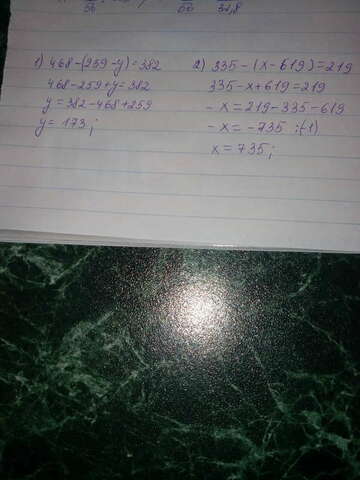 56
60
32,8
1) 468-(259-y)=382
468-259+y=382
y=382-468+259
y= 173;
2) 335-(x-619)=219
335-x+619=219
-x=219-335-619
-x=-735 :(-1)
x=735;